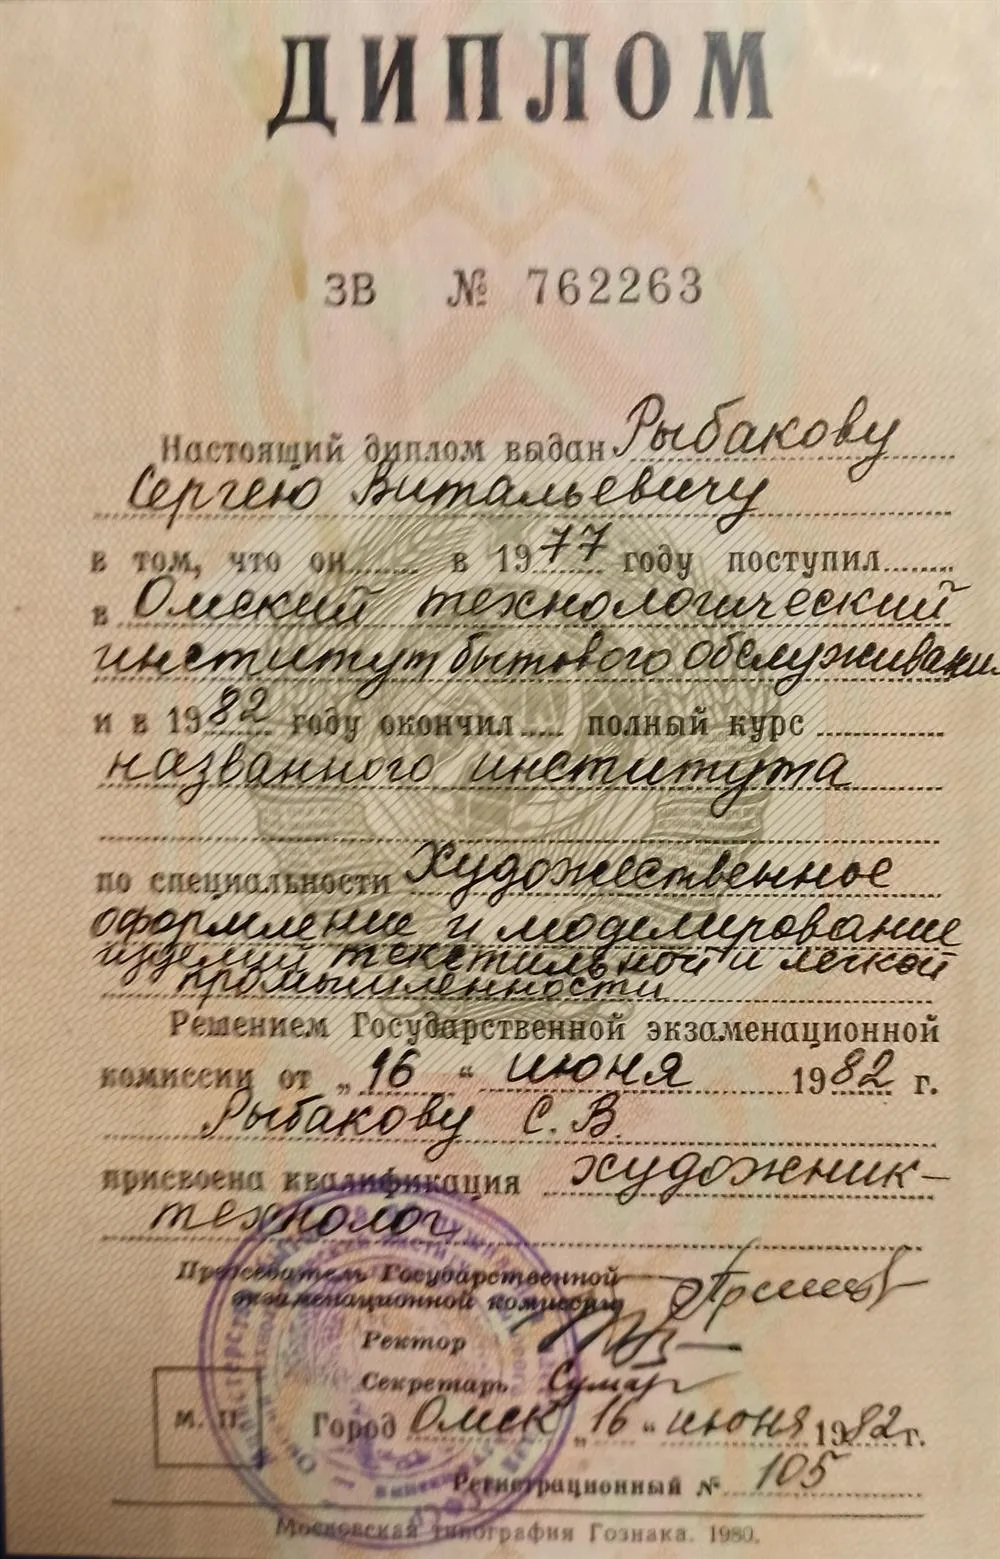 ДИПЛОМ
ЗВ № 762263
Настоящий диплом выдан Рыбакову
Сергею Витальевичу
в том, что он...... в 1977 году поступил.......
в Омский технологический
институт бытового обслуживани
и в 1982 году окончил..... полный курс
названного института
по специальности Художественное
оформление и моделирование
изделий текстильной и легкой
промышленности
Решением Государственной экзаменационной
комиссии от „16“ июня 1982 г.
Рыбакову С. В.
присвоена квалификация художник-
технолог
Председатель Государственной
экзаменационной комиссии
Ректор
Секретарь
М. П.
Город Омск „16“ июня 1982 г.
Регистрационный № 105
Московская типография Гознака. 1980.